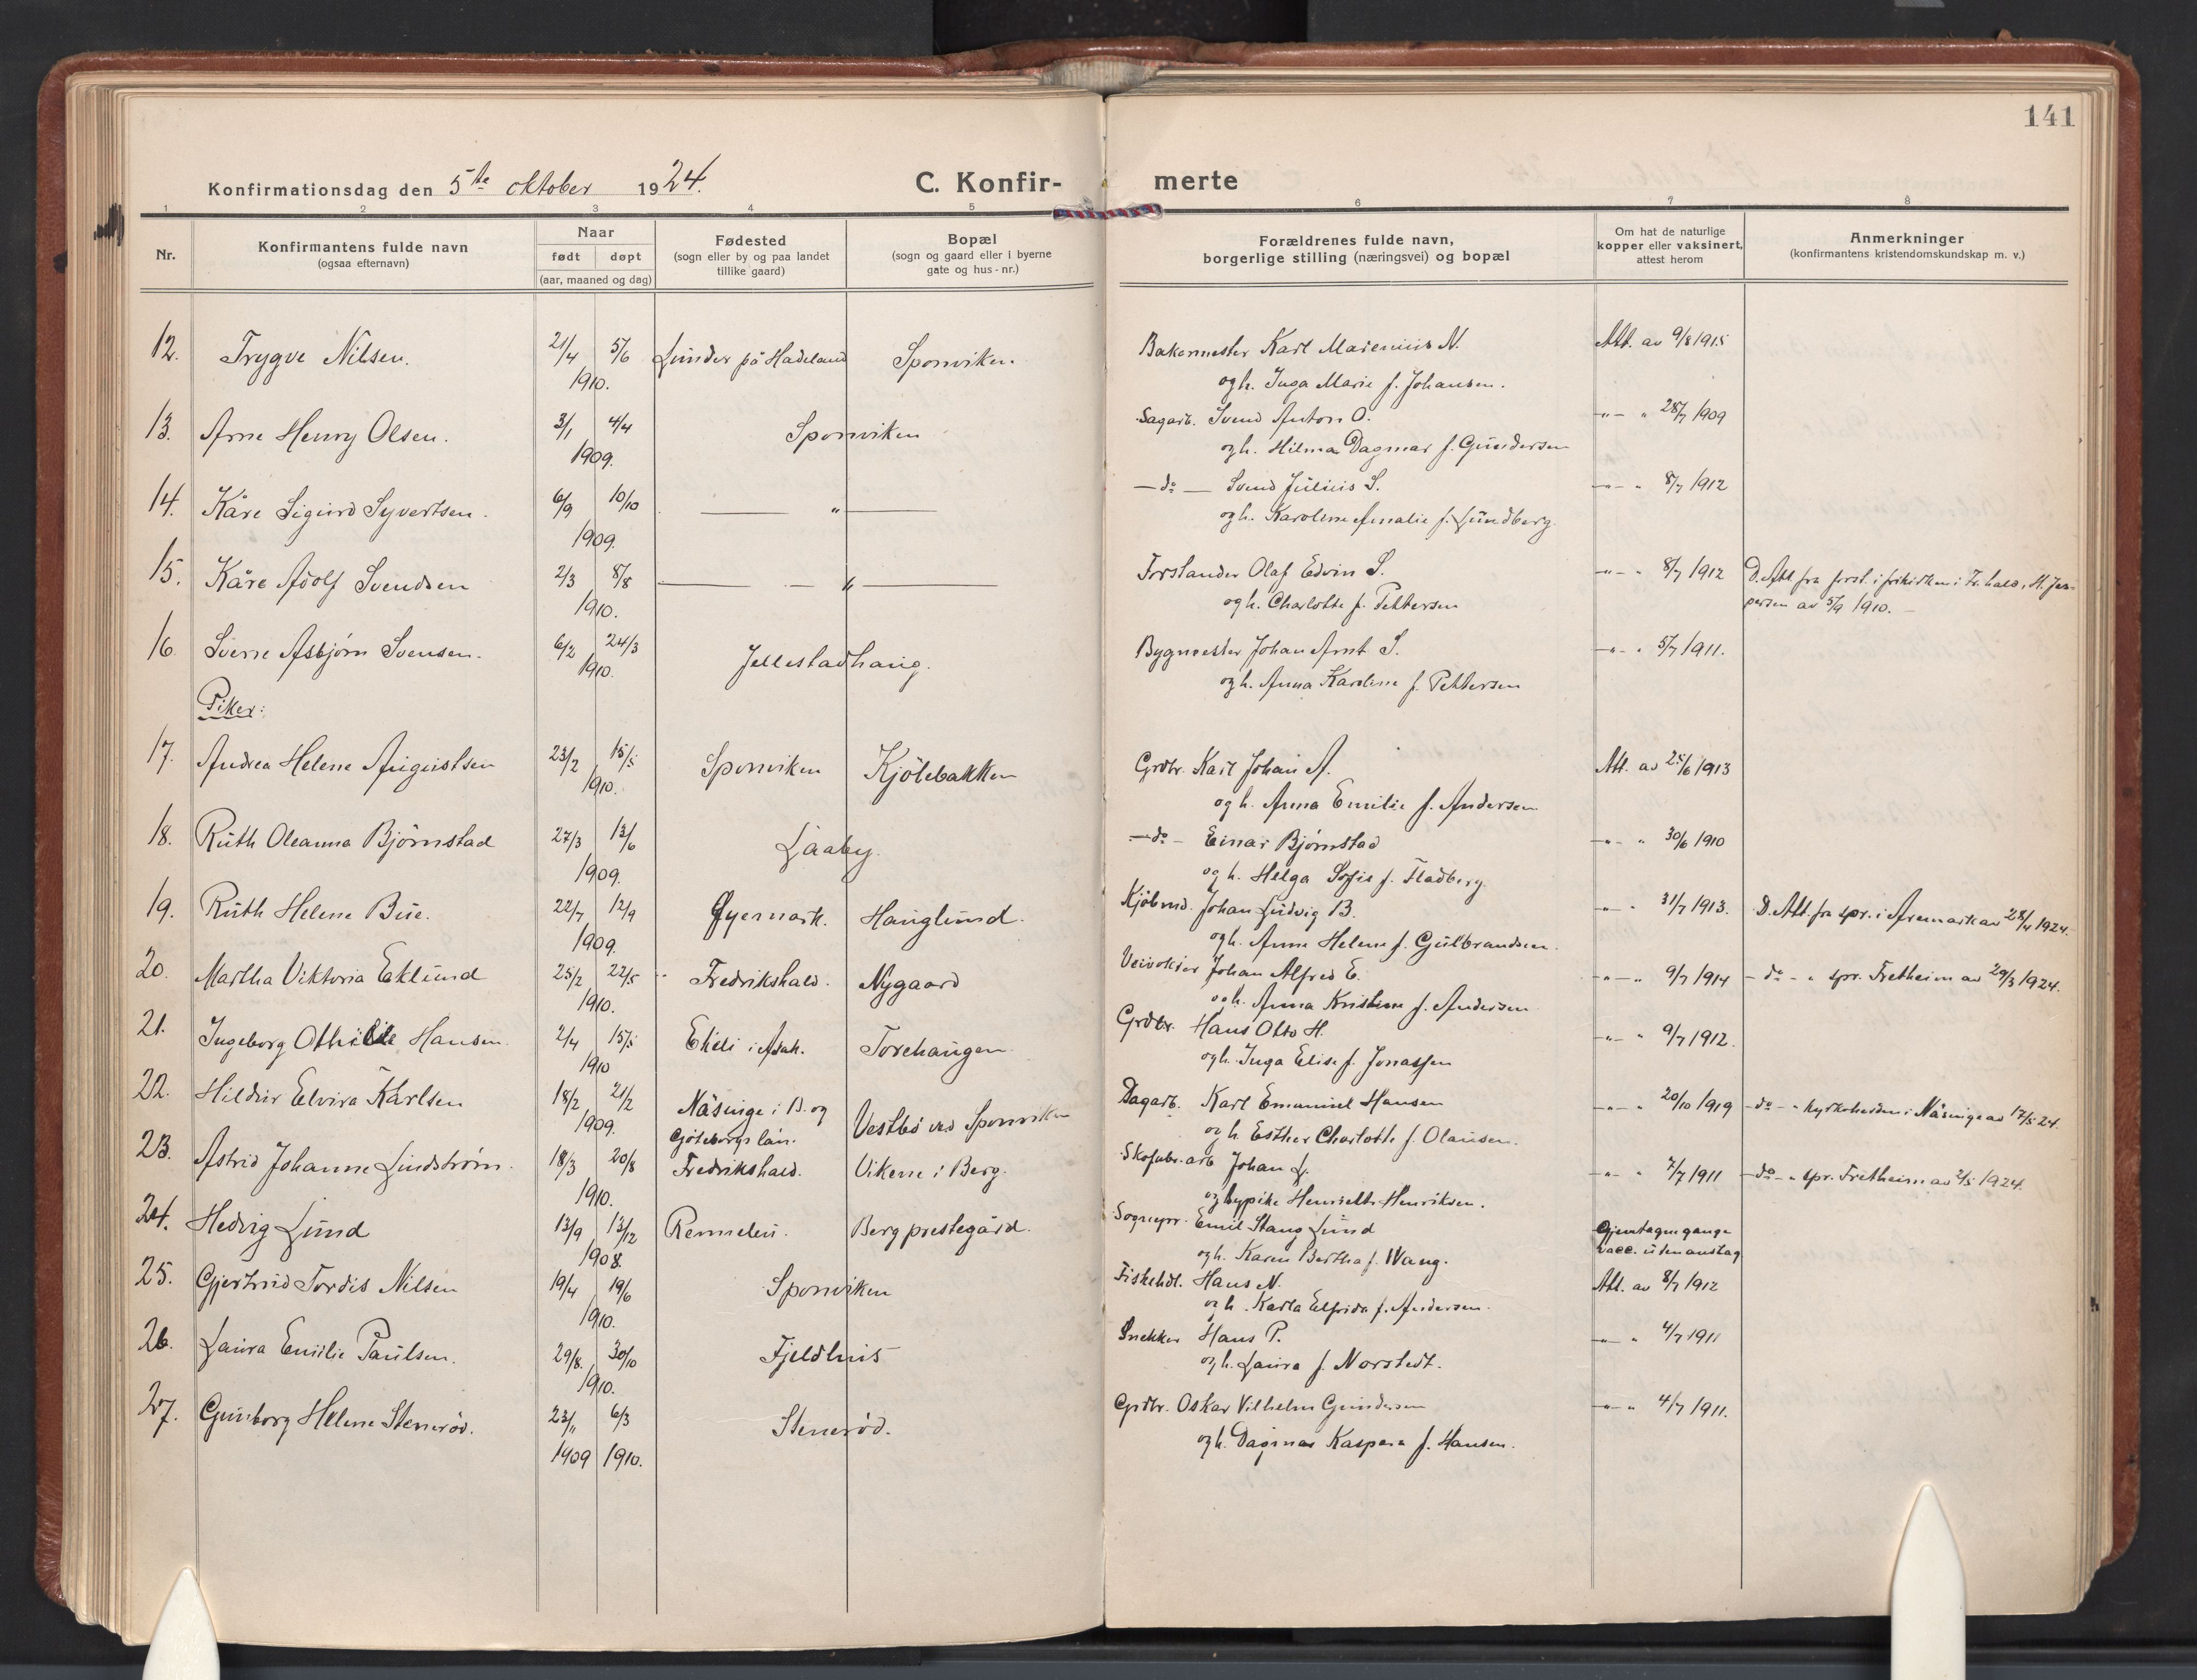 141
Konfirmationsdag den 5te oktober 1924.
C. Konfirmerte
1 2 3 4 5 6 7 8
Nr.
Konfirmantens fulde navn
(ogsaa efternavn)
Naar
født døpt
(aar, maaned og dag)
Fødested
(sogn eller by og paa landet
tillike gaard)
Bopæl
(sogn og gaard eller i byerne
gate og hus-nr.)
Forældrenes fulde navn,
borgerlige stilling (næringsvei) og bopæl
Om hat de naturlige
kopper eller vaksinert,
attest herom
Anmerkninger
(konfirmantens kristendomskundskap m. v.)
12. Trygve Nilsen. 21/4 5/6 Lunder på Hadeland Sponviken. Bakermester Karl Marenius N. Att. av 9/8 1915
1910. og h. Inga Marie f. Johansen.
13. Arne Henry Olsen. 3/1 4/4 Sponviken Sagarb. Svend Anton O. -"- " 28/7 1909
1909. og h. Hilma Dagmar f. Gundersen
14. Kåre Sigurd Syvertsen. 6/9 10/10 — " — -do- Svend Julius S. -"- " 8/7 1912
1909. og h. Karoline Amalie f. Lundberg.
15. Kåre Adolf Svendsen 2/3 8/8 — " — Forstander Olaf Edvin S. -"- " 8/7 1912 D. Att. fra forst. i frikirken i Fr.hald, H. Jes-
1910. og h. Charlotte f. Pettersen persen av 5/9 1910. -
16. Sverre Asbjørn Svensen. 6/2 24/3 Jellestadhaug. Bygmester Johan Arnt S. -"- " 5/7 1911.
1910. og h. Anna Karoline f. Pettersen
Piker:
17. Andrea Helene Augustsen 23/2 15/5 Sponviken Kjölebakken Grdbr. Karl Johan A. Att. av 25/6 1913
1910. og h. Anna Emilie f. Andersen
18. Ruth Oleanna Bjørnstad 27/3 13/6 Laaby. -do- Einar Bjørnstad -"- " 30/6 1910
1909. og h. Helga Sofie f. Fladberg.
19. Ruth Helene Bue. 22/7 12/9 Øyemark. Hauglund. Kjöbmd. Johan Ludvig B. -"- " 31/7 1913. D. Att. fra spr. i Aremark av 28/4 1924.
1909. og h. Anne Helene f. Gulbrandsen.
20. Martha Viktoria Eklund 25/2 22/5 Fredrikshald. Nygaard Veivokter Johan Alfred E. -"- " 9/7 1914 -do- " spr. Fretheim av 29/3 1924.
1910. og h. Anna Kristine f. Andersen
21. Ingeborg Othilie Hansen. 2/4 15/5 Ekeli i Asak. Torehaugen Grdbr. Hans Otto H. -"- " 9/7 1912.
1910 og h. Inga Elise f. Jonassen
22. Hildur Elvira Karlsen 18/2 21/2 Näsinge i B. og Vestbö ved Sponviken Dagarb. Karl Emanuel Hansen -"- " 20/10 1919 -do- " kyrkoherden i Näsinge av 17/5 24.
1909. Göteborgs län. og h. Esther Charlotte f. Olausen.
23. Astrid Johanne Lindstrøm. 18/3 20/8 Fredrikshald. Vikene i Berg. Skofabr. arb Johan L. -"- " 7/7 1911 -do- " spr. Fretheim av 2/5 1924
1910. og bypike Henriette Henriksen.
24. Hedvig Lund 13/9 13/12 Rennebu. Berg prestegård. Sognepr. Emil Stang Lund Gjentagne gange
1908. og h. Karen Bertha f. Wang. vacc. uten anslag
25. Gjertrud Tordis Nilsen 19/4 19/6 Sponviken Fiskehdl. Hans N. Att. av 8/7 1912
1910. og h. Karla Elfrida f. Andersen.
26. Laura Emilie Paulsen. 29/8. 30/10 Fjeldhus Snekker Hans P. -"- " 4/7 1911
1910. og h. Laura f. Norstedt.
27. Gunborg Helene Stenerød. 23/11 6/3 Stenerød. Grdbr. Oskar Vilhelm Gundersen -"- " 4/7 1911.
1909 1910. og h. Dagmar Kaspara f. Hansen.